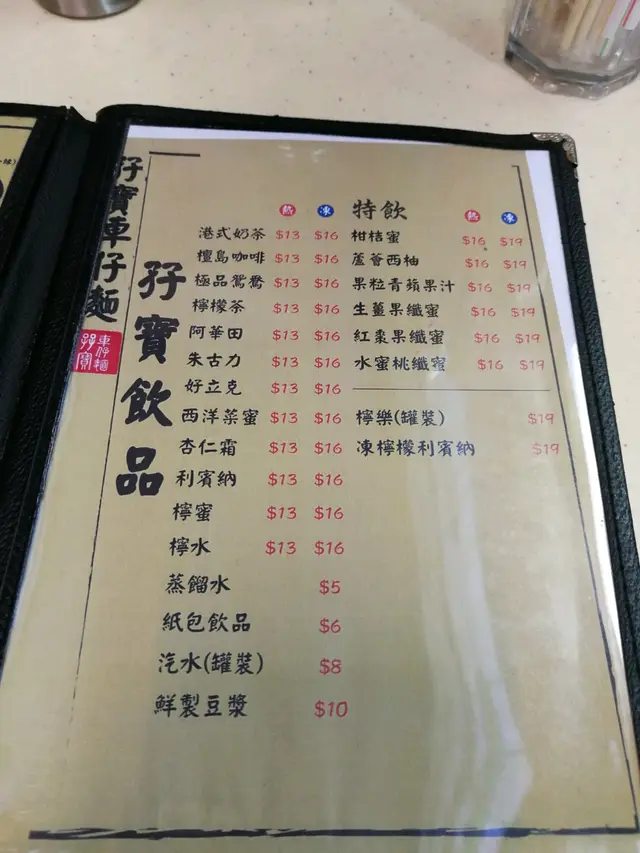 孖寶車仔麵
孖寶
車仔麵
孖寶飲品
熱 凍
港式奶茶 $13 $16
檀島咖啡 $13 $16
極品鴛鴦 $13 $16
檸檬茶 $13 $16
阿華田 $13 $16
朱古力 $13 $16
好立克 $13 $16
西洋菜蜜 $13 $16
杏仁霜 $13 $16
利賓納 $13 $16
檸蜜 $13 $16
檸水 $13 $16
蒸餾水 $5
紙包飲品 $6
汽水(罐裝) $8
鮮製豆漿 $10
特飲 熱 凍
柑桔蜜 $16 $19
蘆薈西柚 $16 $19
果粒青蘋果汁 $16 $19
生薑果纖蜜 $16 $19
紅棗果纖蜜 $16 $19
水蜜桃纖蜜 $16 $19
檸樂(罐裝) $19
凍檸檬利賓納 $19